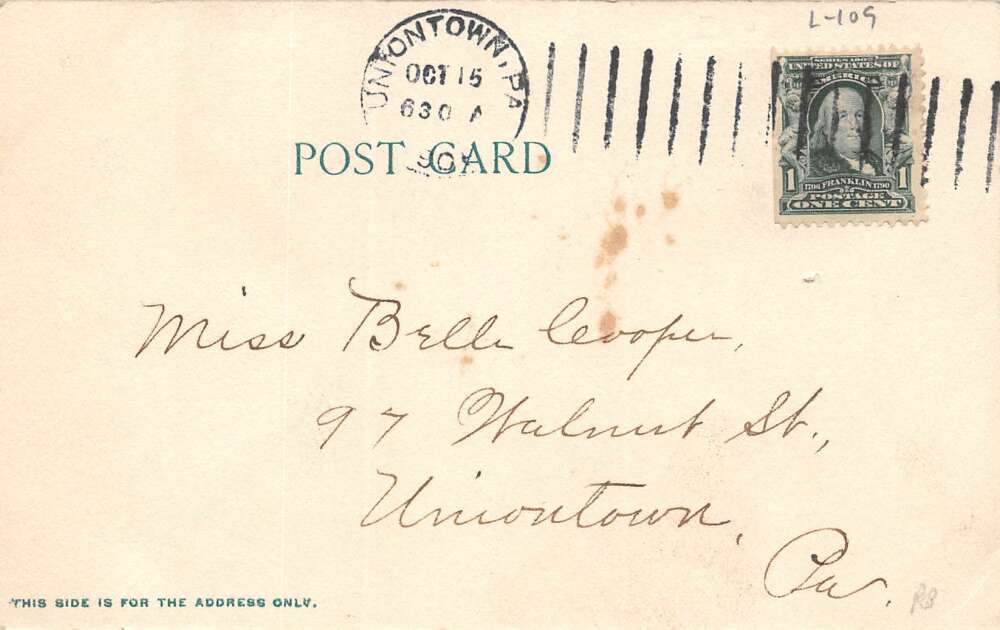 L-109
UNIONTOWN, PA
OCT 15
630 A
SERIES 1902
UNITED STATES OF
AMERICA
1 1706 FRANKLIN 1790 1
POSTAGE
ONE CENT
POST CARD
Miss Belle Cooper,
97 Walnut St.,
Uniontown,
Pa.
THIS SIDE IS FOR THE ADDRESS ONLY.
RB